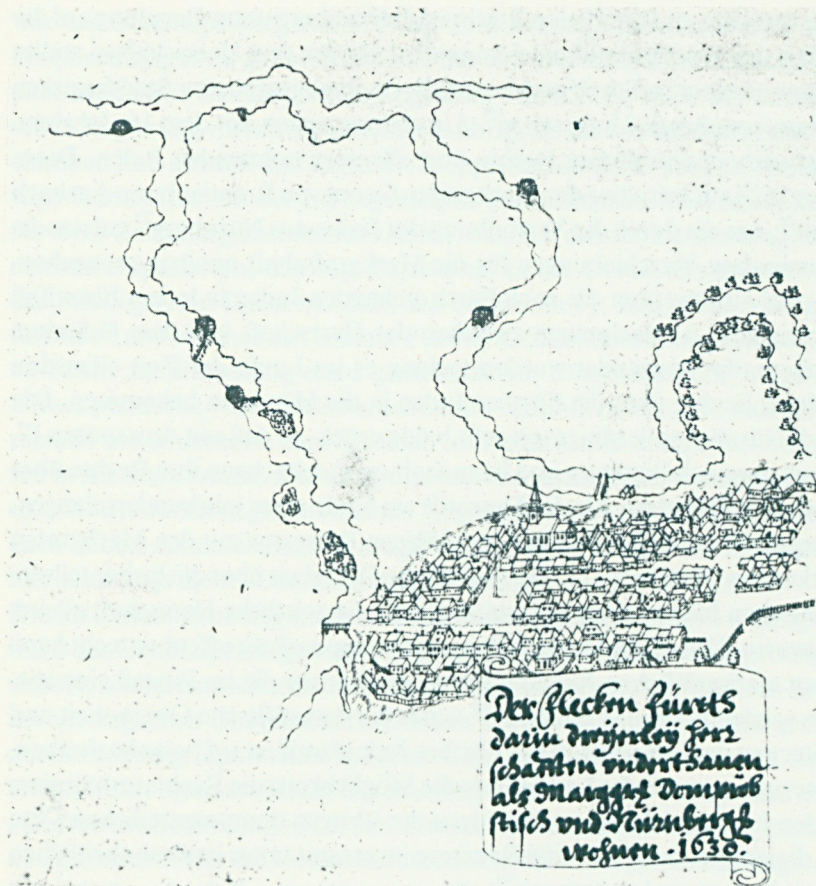 Der Flecken Fürets
darin dreÿerleÿ Herr
schafften vnderthanen
als Marggfl Dompröb
stisch vnd Nürnbergl
wohnen . 1630.